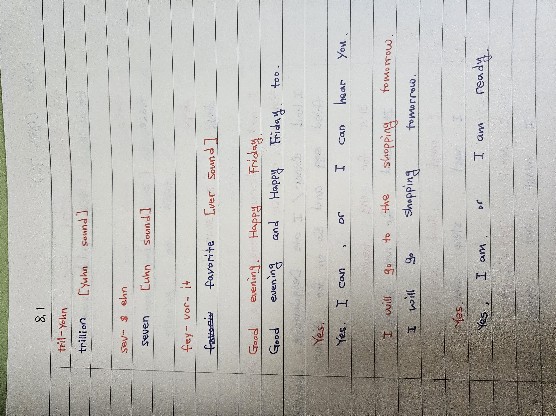 8.1
tril-yuhn
trillion [yuhn sound]
sev- ehn
seven [uhn sound]
fey-vor-it
favorite [ver sound]
Good evening. Happy Friday.
Good evening and Happy Friday, too.
Yes.
Yes, I can, or I can hear you.
I will go to the shopping tomorrow.
I will go shopping tomorrow.
Yes.
Yes, I am. or I am ready.